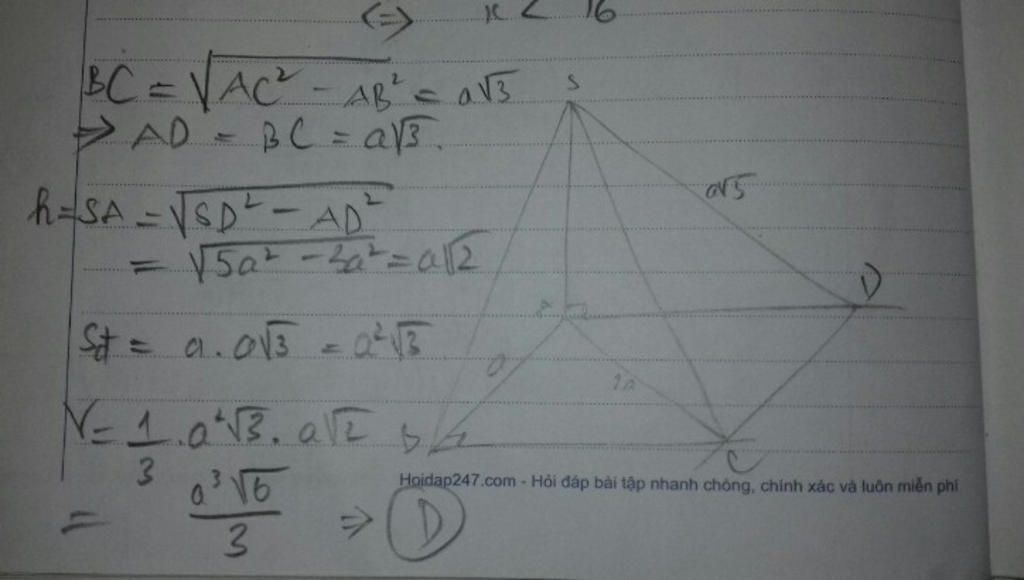 <=> x < 16
BC = √(AC² - AB²) = a√3
=> AD = BC = a√3.
h = SA = √(SD² - AD²)
= √(5a² - 3a²) = a√2
Sđ = a . a√3 = a²√3
V = 1/3 . a²√3 . a√2
= a³√6/3 => D
S
a√5
A
D
a
2a
B
C
Hoidap247.com - Hỏi đáp bài tập nhanh chóng, chính xác và luôn miễn phí